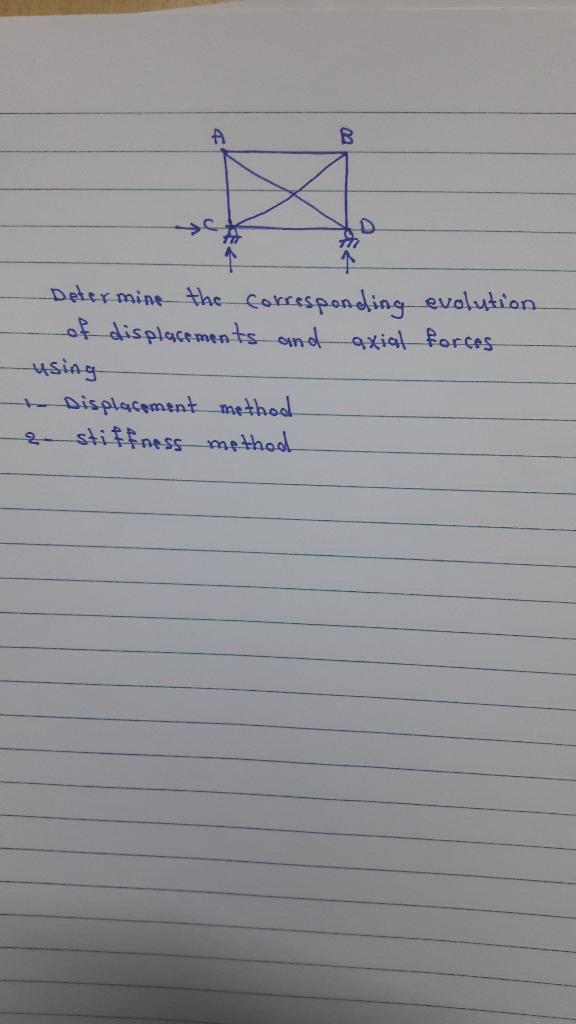 A B
C D
Determine the corresponding evolution
of displacements and axial forces
using
1- Displacement method
2- stiffness method